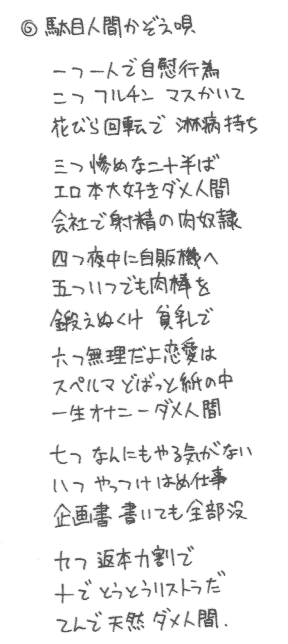 ⑥ 駄目人間かぞえ唄
一つ 一人で自慰行為
二つ フルチン マスかいて
花びら回転で 淋病持ち
三つ 惨めな二十半ば
エロ本大好きダメ人間
会社で射精の肉奴隷
四つ 夜中に自販機へ
五つ いつでも肉棒を
鍛えぬくけ 貧乳で
六つ 無理だよ恋愛は
スペルマ どばっと紙の中
一生オナニーダメ人間
七つ なんにもやる気がない
八つ やっつけはめ仕事
企画書 書いても全部没
九つ 返本力割で
十で とうとうリストラだ
てんで 天然 ダメ人間.